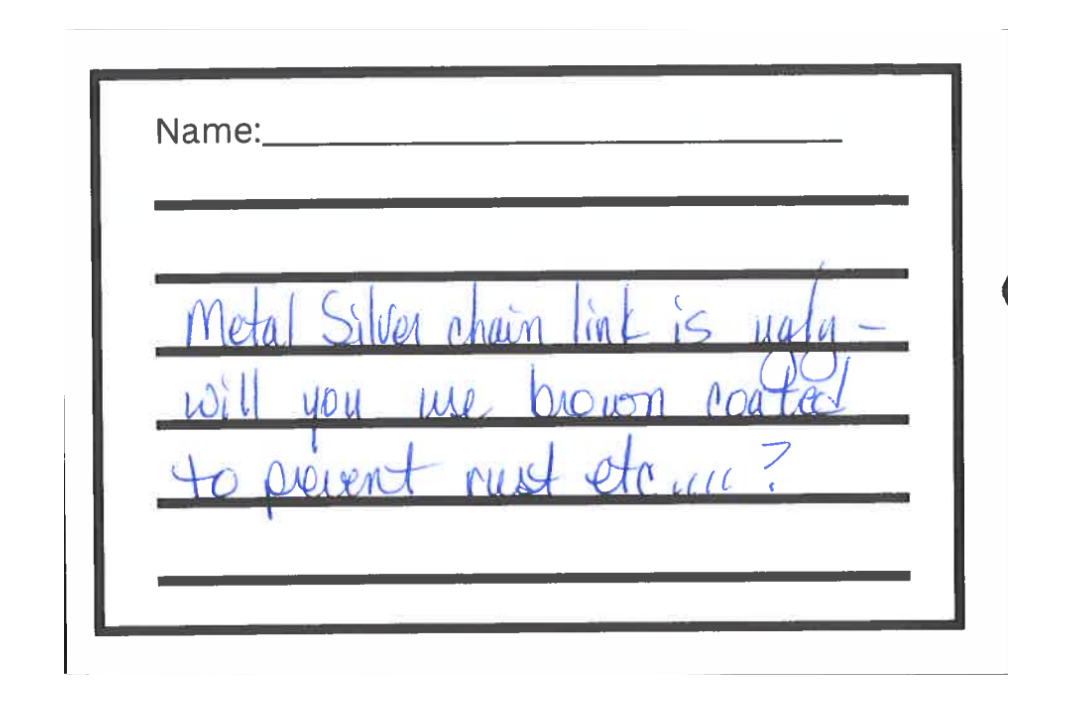 Name:
Metal Silver chain link is ugly -
will you use brown coated
to prevent rust etc.....?